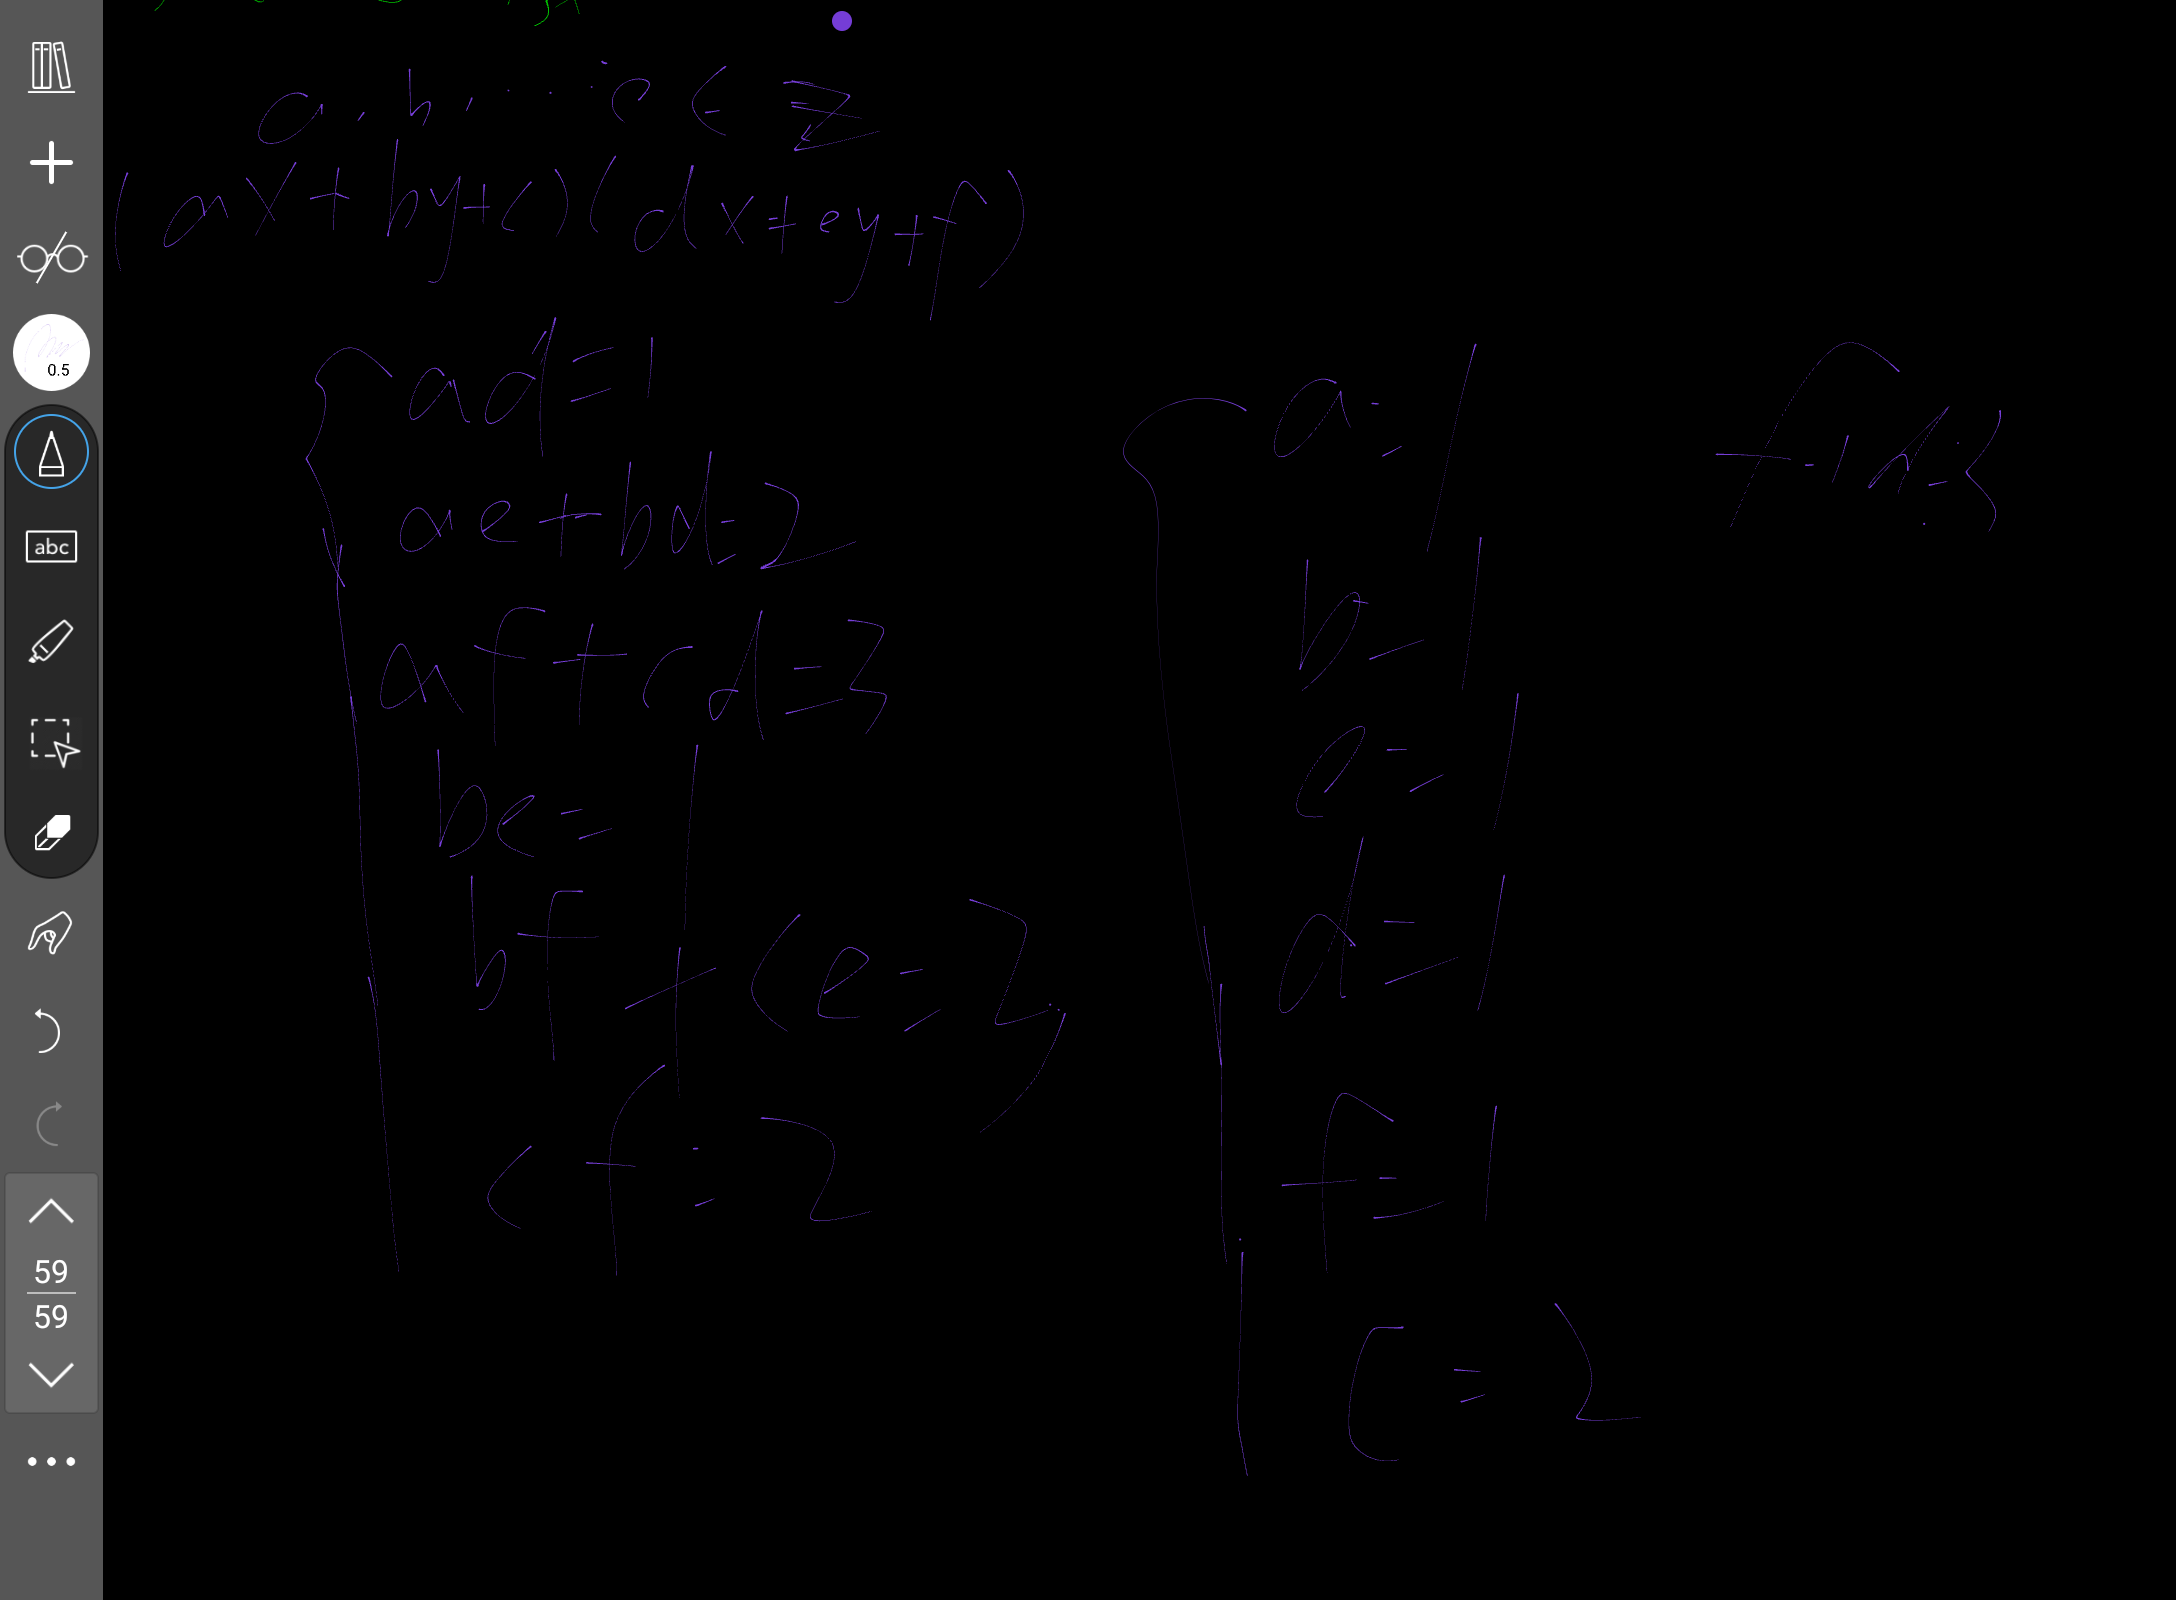 a, b, ... e ∈ Z
(ax + by + c)(dx + ey + f)
ad = 1
ae + bd = 2
af + cd = 3
be = 1
bf + ce = 3
cf = 2
a = 1
b = 1
e = 1
d = 1
f = 1
c = 2
0.5
abc
59
59